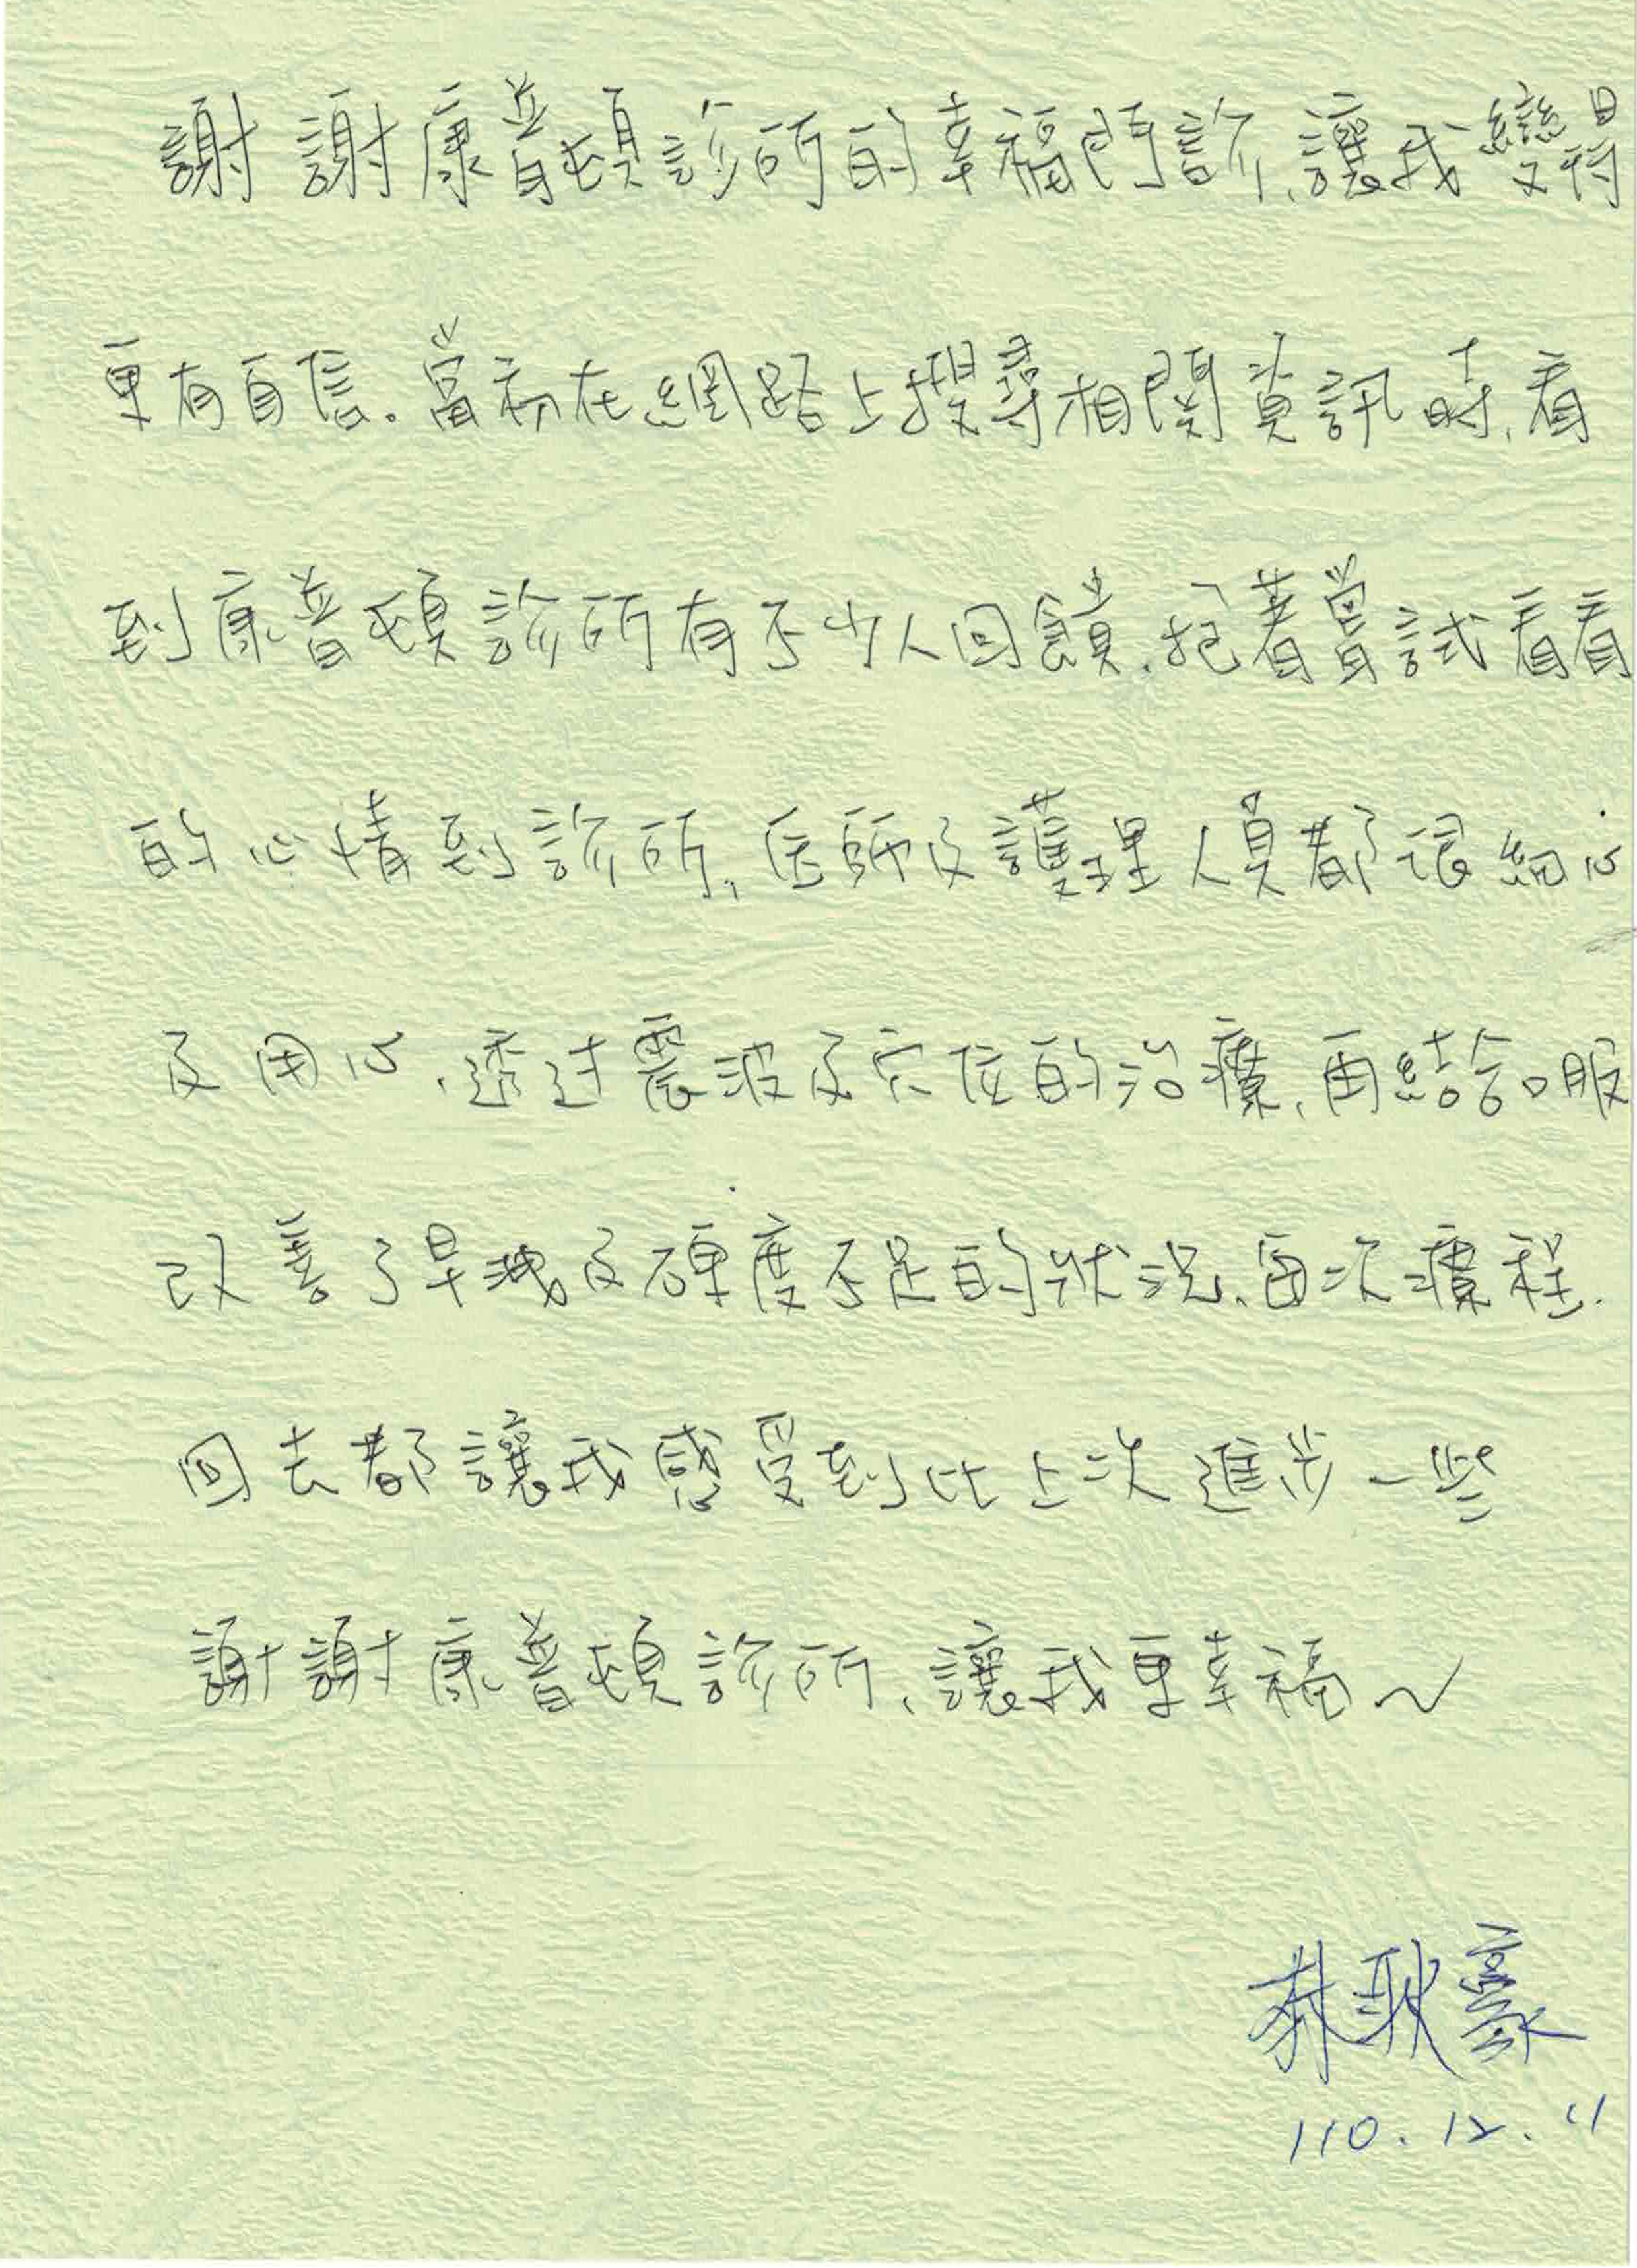 謝謝康普頓診所的幸福門診、讓我變得
更有自信。當初在網路上搜尋相關資訊時、看
到康普頓診所有不少人回饋、抱著嘗試看看
的心情到診所、医師及護理人員都很細心
及用心、透过震波及穴位的治療、再結合口服
改善了早洩及硬度不足的狀況、每次療程
回去都讓我感受到比上次進步一些
謝謝康普頓診所、讓我更幸福~
110.12.11